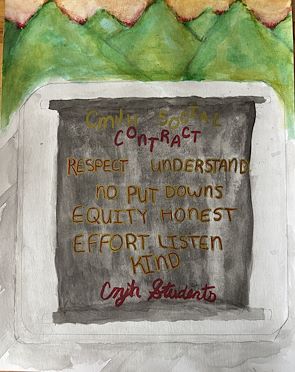 Cmjh SOCIAL
CONTRACT
RESPECT UNDERSTAND
NO PUT DOWNS
EQUITY HONEST
EFFORT LISTEN
KIND
Cmjh Students